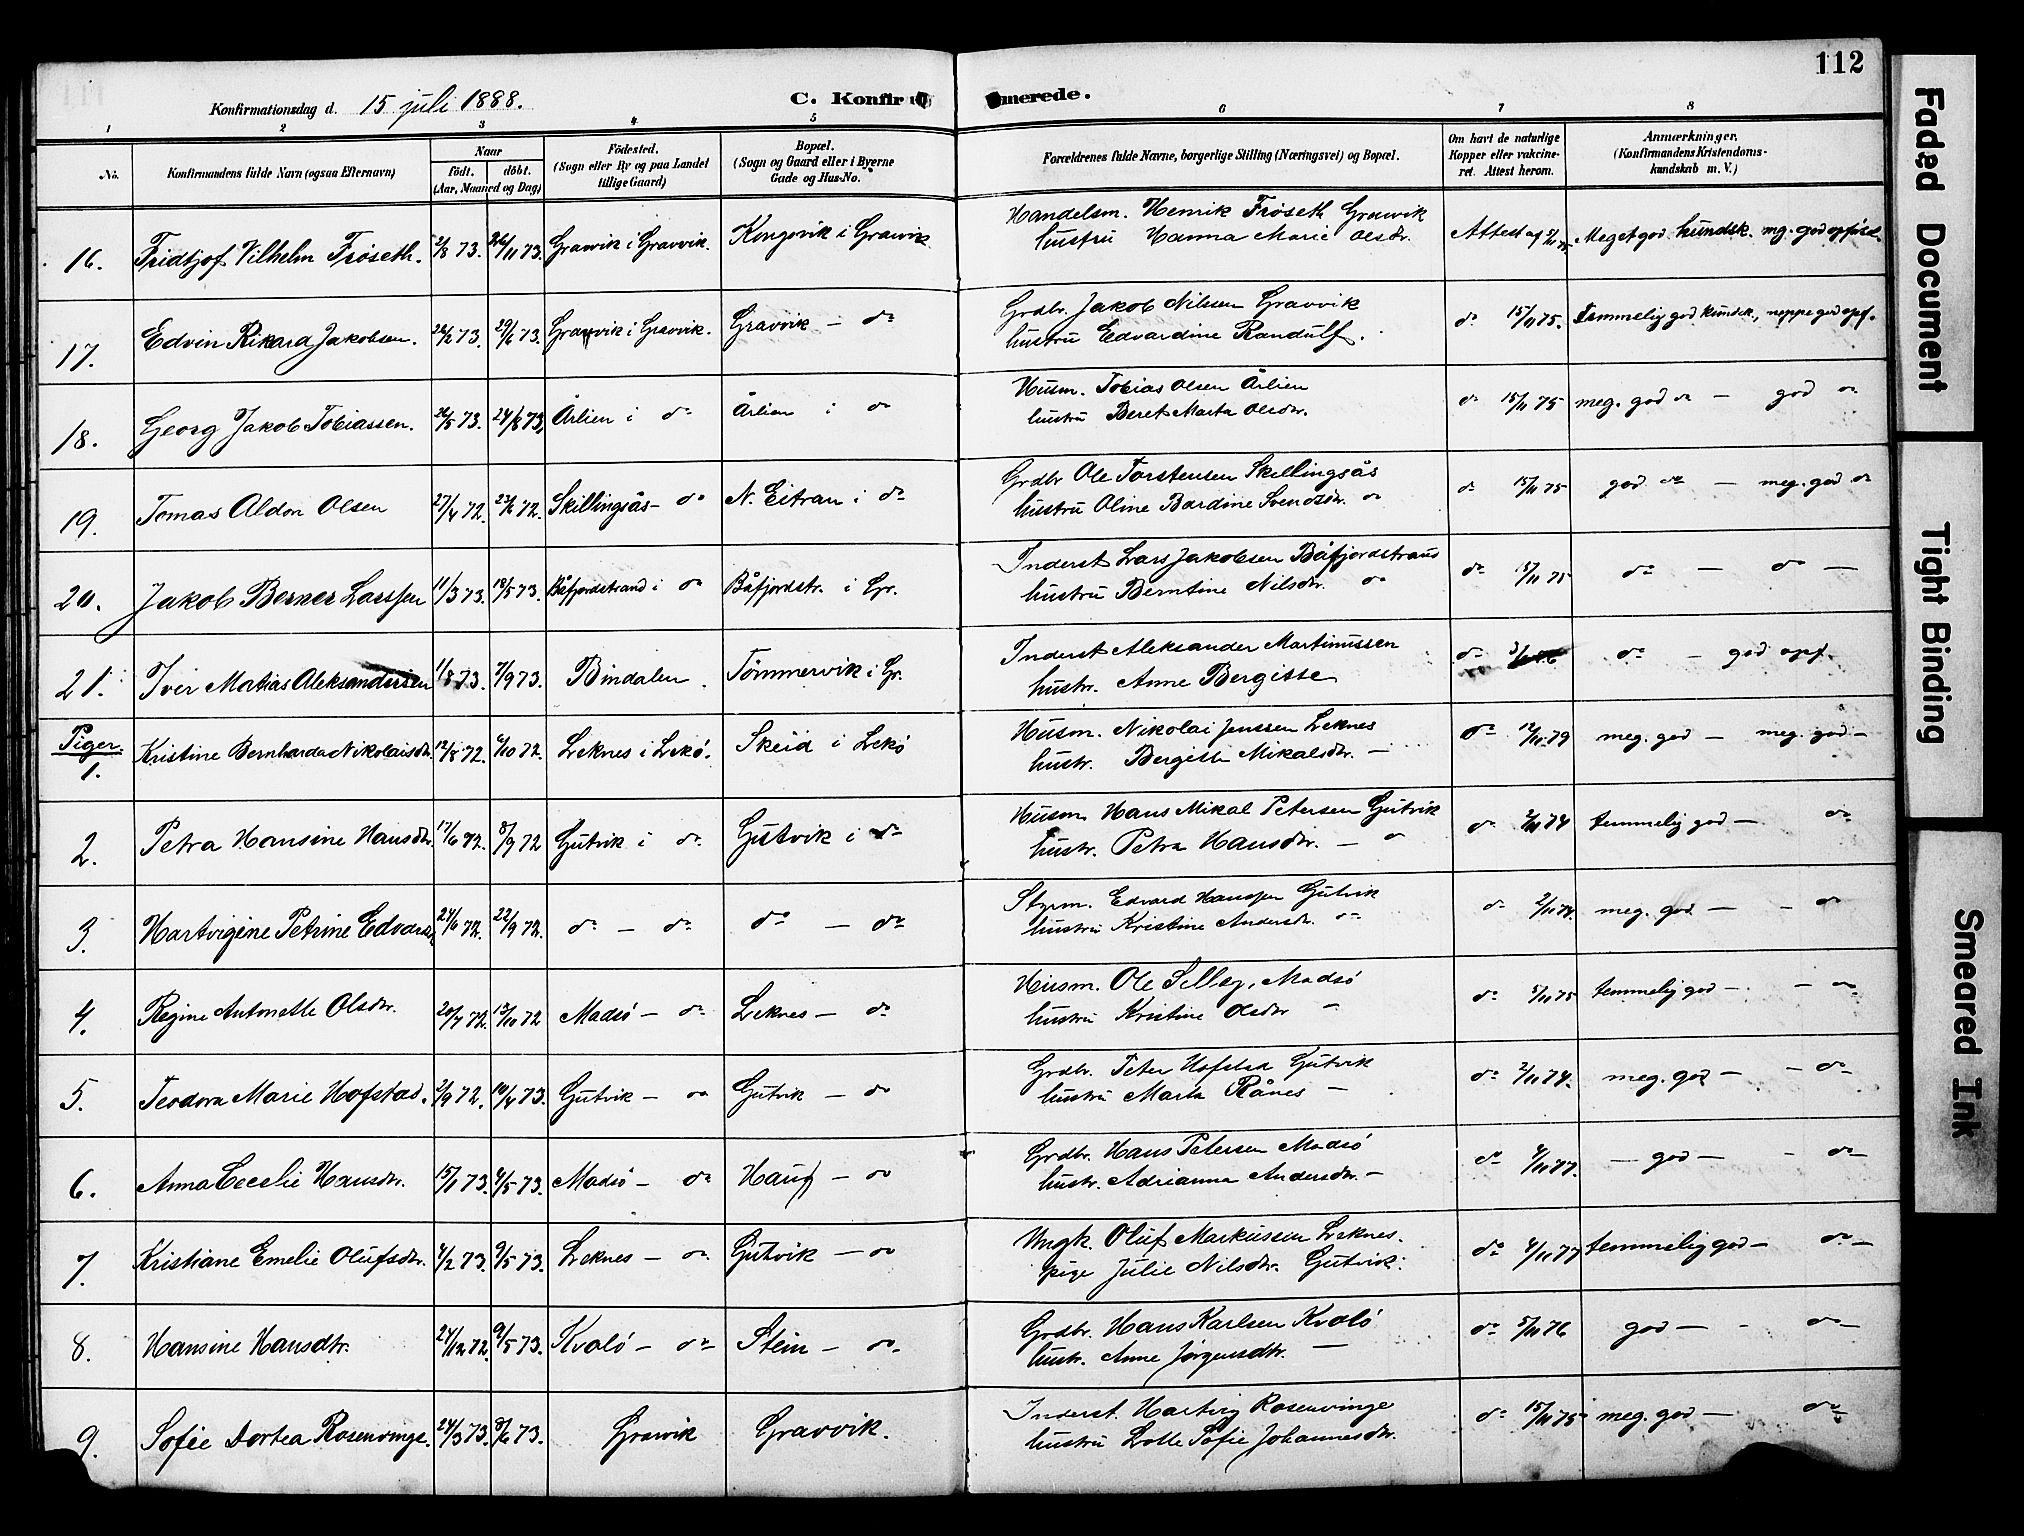 112
Konfirmationsdag d. 15 juli 1888. C. Konfirmerede.
1 2 3 4 5 6 7 8
No. Konfirmandens fulde Navn (ogsaa Efternavn) Naar födt. döbt. (Aar, Maaned og Dag) Födested. (Sogn eller By og paa Landet tillige Gaard) Bopæl. (Sogn og Gaard eller i Byerne Gade og Hus-No. Forældrenes fulde Navne, borgerlige Stilling (Næringsvei) og Bopæl. Om havt de naturlige Kopper eller vakcineret. Attest herom. Anmærkninger. (Konfirmandens Kristendomskundskab m. V.)
16. Fridtjof Vilhelm Fröseth. 2/8 73. 26/11 73. Gravvik i Gravvik. Kongsvik i Gravvik Handelsm. Henrik Fröseth Gravvik
hustru Hanna Marie Olsdr. Attest af Meget god kundsk. mg. god opförs.
17. Edvin Rikard Jakobsen. 26/2 73. 29/6 73. Gravvik i Gravvik. Gravvik – do Grdbr. Jakob Nilssen Gravvik
hustru Edvardine Randulf. do 15/11 75. Temmelig god kundsk., neppe god opf.
18. Georg Jakob Tobiassen. 26/5 73. 24/8 73, Årlien i do Årlien i do Husm. Tobias Olsen Årlien
hustru Beret Marta Olsdr. do 15/11 75 meg. god do – god do
19. Tomas Aldon Olsen 27/4 72. 23/6 72. Skillingsås – do N. Eitran i do Grdbr Ole Torstensen Skillingsås
hustru Oline Bardine Svendsdr. do do 15/11 75 god do – meg. god do
20. Jakob Berner Larssen 11/3 73. 18/5 73. Båfjordstrand i do Båfjordstr. i Gr. Inderst Lars Jakobsen Båfjordstrand
hustru Berntine Nilsdr. do do 15/11 75 do – do –
21. Iver Matias Aleksandersen 1/8 73. 7/9 73. Bindalen Tömmervik i Gr. Inderst Aleksander Martinussen
hustr. Anne Bergitte do do – god opf.
Piger.
1. Kristine Bernharda Nikolaisdr. 12/8 72. 6/10 72. Leknes i Lekö. Skeid i Lekö Husm. Nikolai Jenssen Leknes
hustr. Bergitte Mikalsdr. – do 12/11 79 meg. god – meg. god –
2. Petra Hansine Hansdtr. 17/6 72. 8/9 72 Gutvik i do Gutvik i do Husm Hans Mikal Petersen Gutvik
hustr. Petra Hansdtr. – do do 2/11 74 temmelig god – do
3. Hartvigine Petrine Edvardsd. 24/6 72. 22/9 72. do – do do – do Styrm. Edvard Hanssen Gutvik
hustru Kristine Andersdr. do do 2/11 74. meg. god – – do
4. Regine Antonette Olsdtr. 20/7 72. 13/10 72 Madsö – do Leknes – do Husm. Ole Madsö
hustru Kristine Olsdtr – do 5/11 75 temmelig god – – do
5. Teodora Marie Hofstad. 2/9 72. 10/4 73. Gutvik – do Gutvik – do Grdbr. Peter Hofstad Gutvik
hustru Marta Rånes – do 2/11 74. meg. god – – do –
6. Anna Cecelie Hansdtr. 15/1 73. 4/5 73. Madsö – do Haug – do Grdbr. Hans Petersen Madsö
hustr. Adrianna Andersdtr. – do 4/11 77. – god – – do –
7. Kristiane Emelie Olufsdtr. 4/2 73. 9/5 73. Leknes – do Gutvik – do Ungk. Oluf Markussen Leknes.
pige Julie Nilsdtr. Gutvik. do 4/11 77 temmelig god – do –
8. Hansine Hansdtr. 24/12 72. 9/5 73. Kvalö – do Stein – do. Grdbr. Hans Karlsen Kvalö
hustr. Anne Jörgensdtr. – do 5/11 76 god – – do –
9. Sofie Dortea Rosenvinge. 24/3 73. 8/6 73. Gravvik Gravvik. Inderst. Hartvig Rosenvinge
hustru Lotte Sofie Johannesdtr. do 15/11 75 meg. god – do
Faded Document
Tight Binding
Smeared Ink